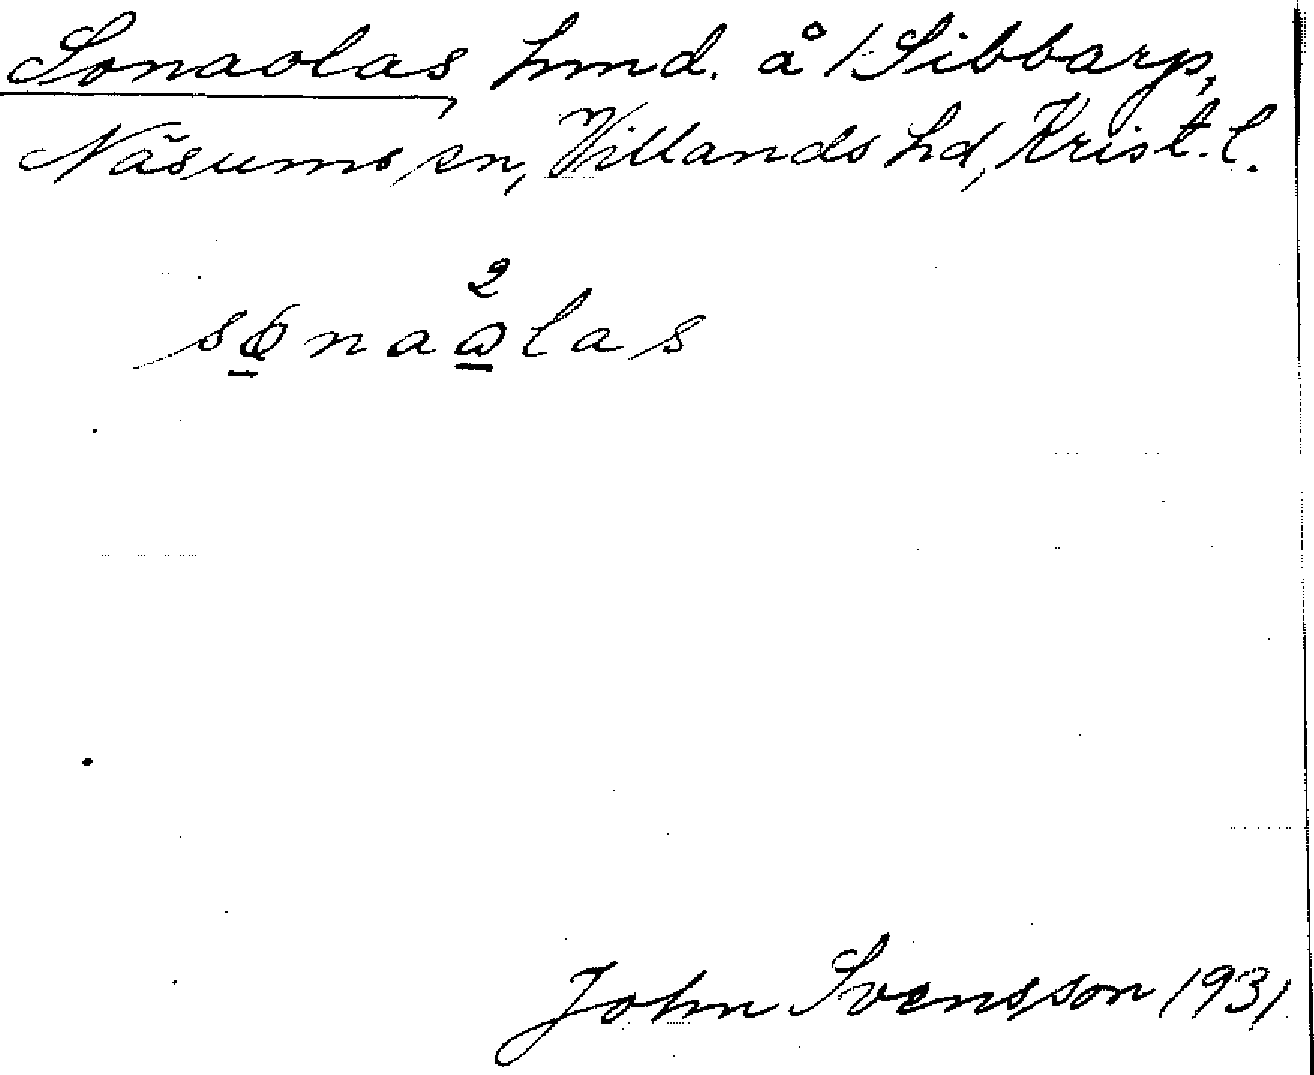 Sonaolas, hmd. å 1 Sibbarp,
Näsums sn, Villands hd, Krist. l.
2
sønaalas
John Svensson 1931